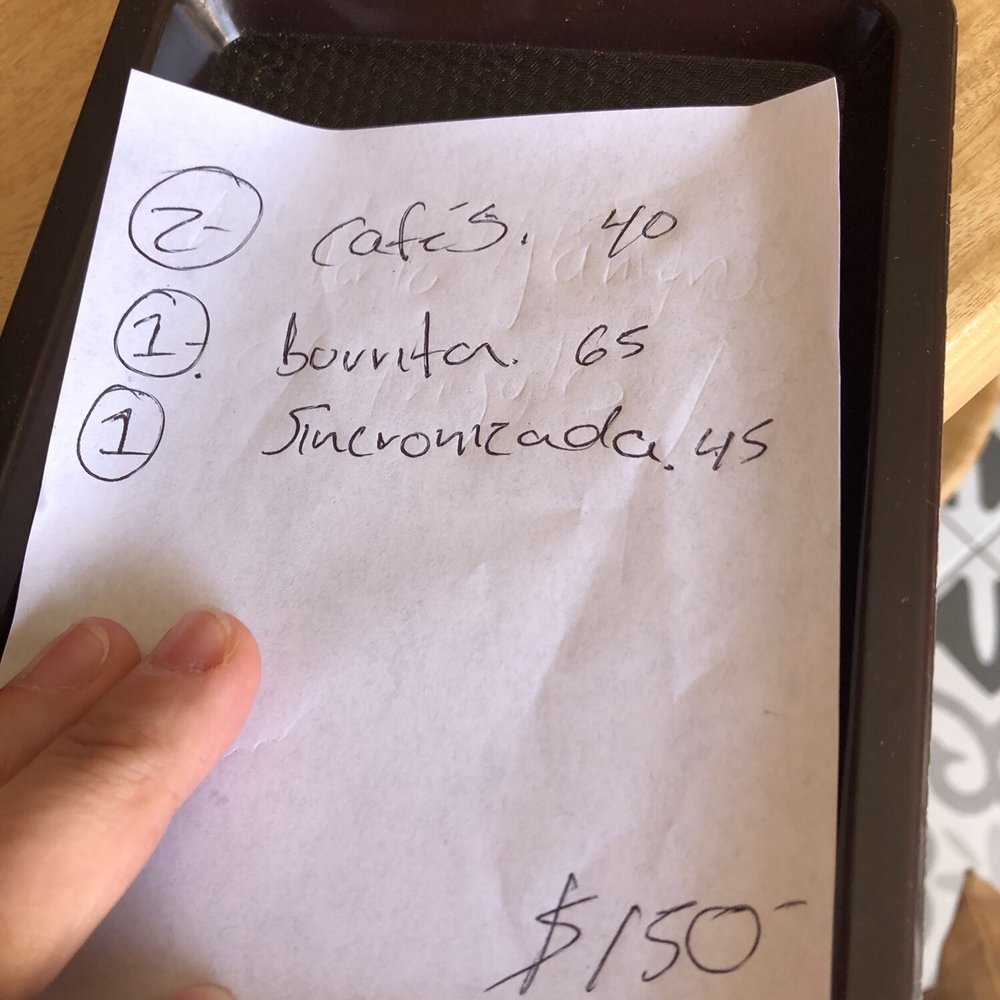 2- cafés. 40
1-. burrita. 65
1 Sincronizada. 45
$150-